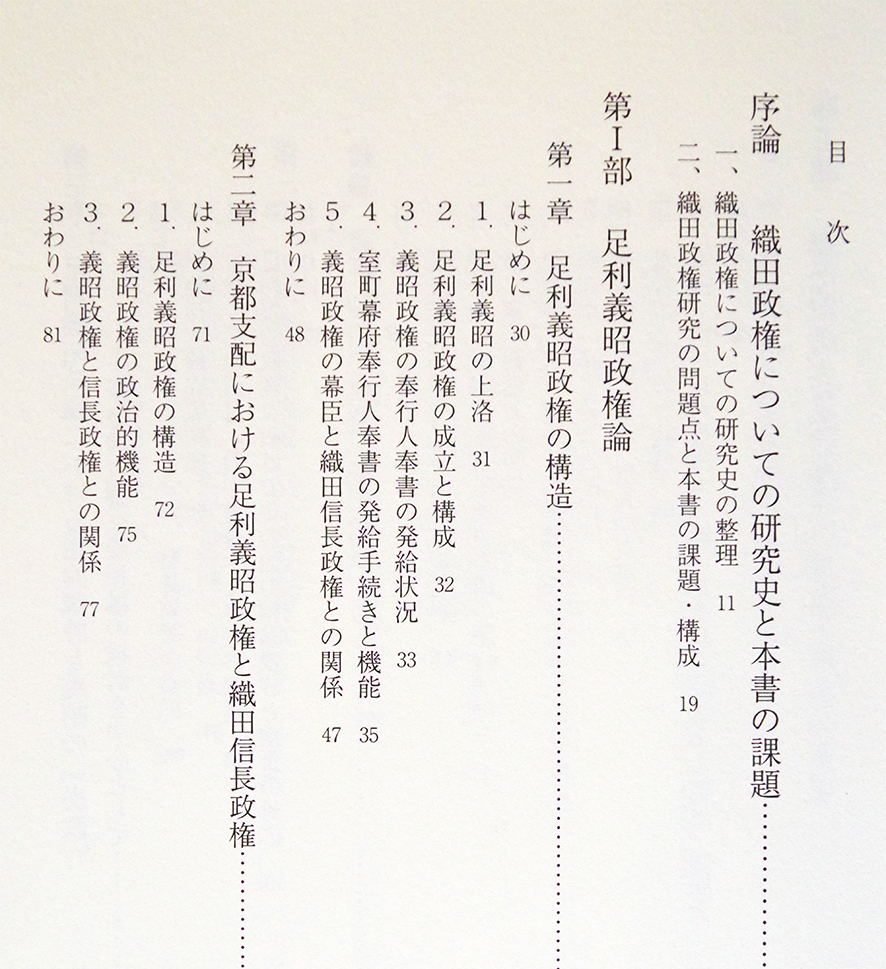 目次
序論　織田政権についての研究史と本書の課題……………
一、織田政権についての研究史の整理　11
二、織田政権研究の問題点と本書の課題・構成　19
第Ⅰ部　足利義昭政権論
第一章　足利義昭政権の構造……………………………
はじめに　30
1．足利義昭の上洛　31
2．足利義昭政権の成立と構成　32
3．義昭政権の奉行人奉書の発給状況　33
4．室町幕府奉行人奉書の発給手続きと機能　35
5．義昭政権の幕臣と織田信長政権との関係　47
おわりに　48
第二章　京都支配における足利義昭政権と織田信長政権…………
はじめに　71
1．足利義昭政権の構造　72
2．義昭政権の政治的機能　75
3．義昭政権と信長政権との関係　77
おわりに　81